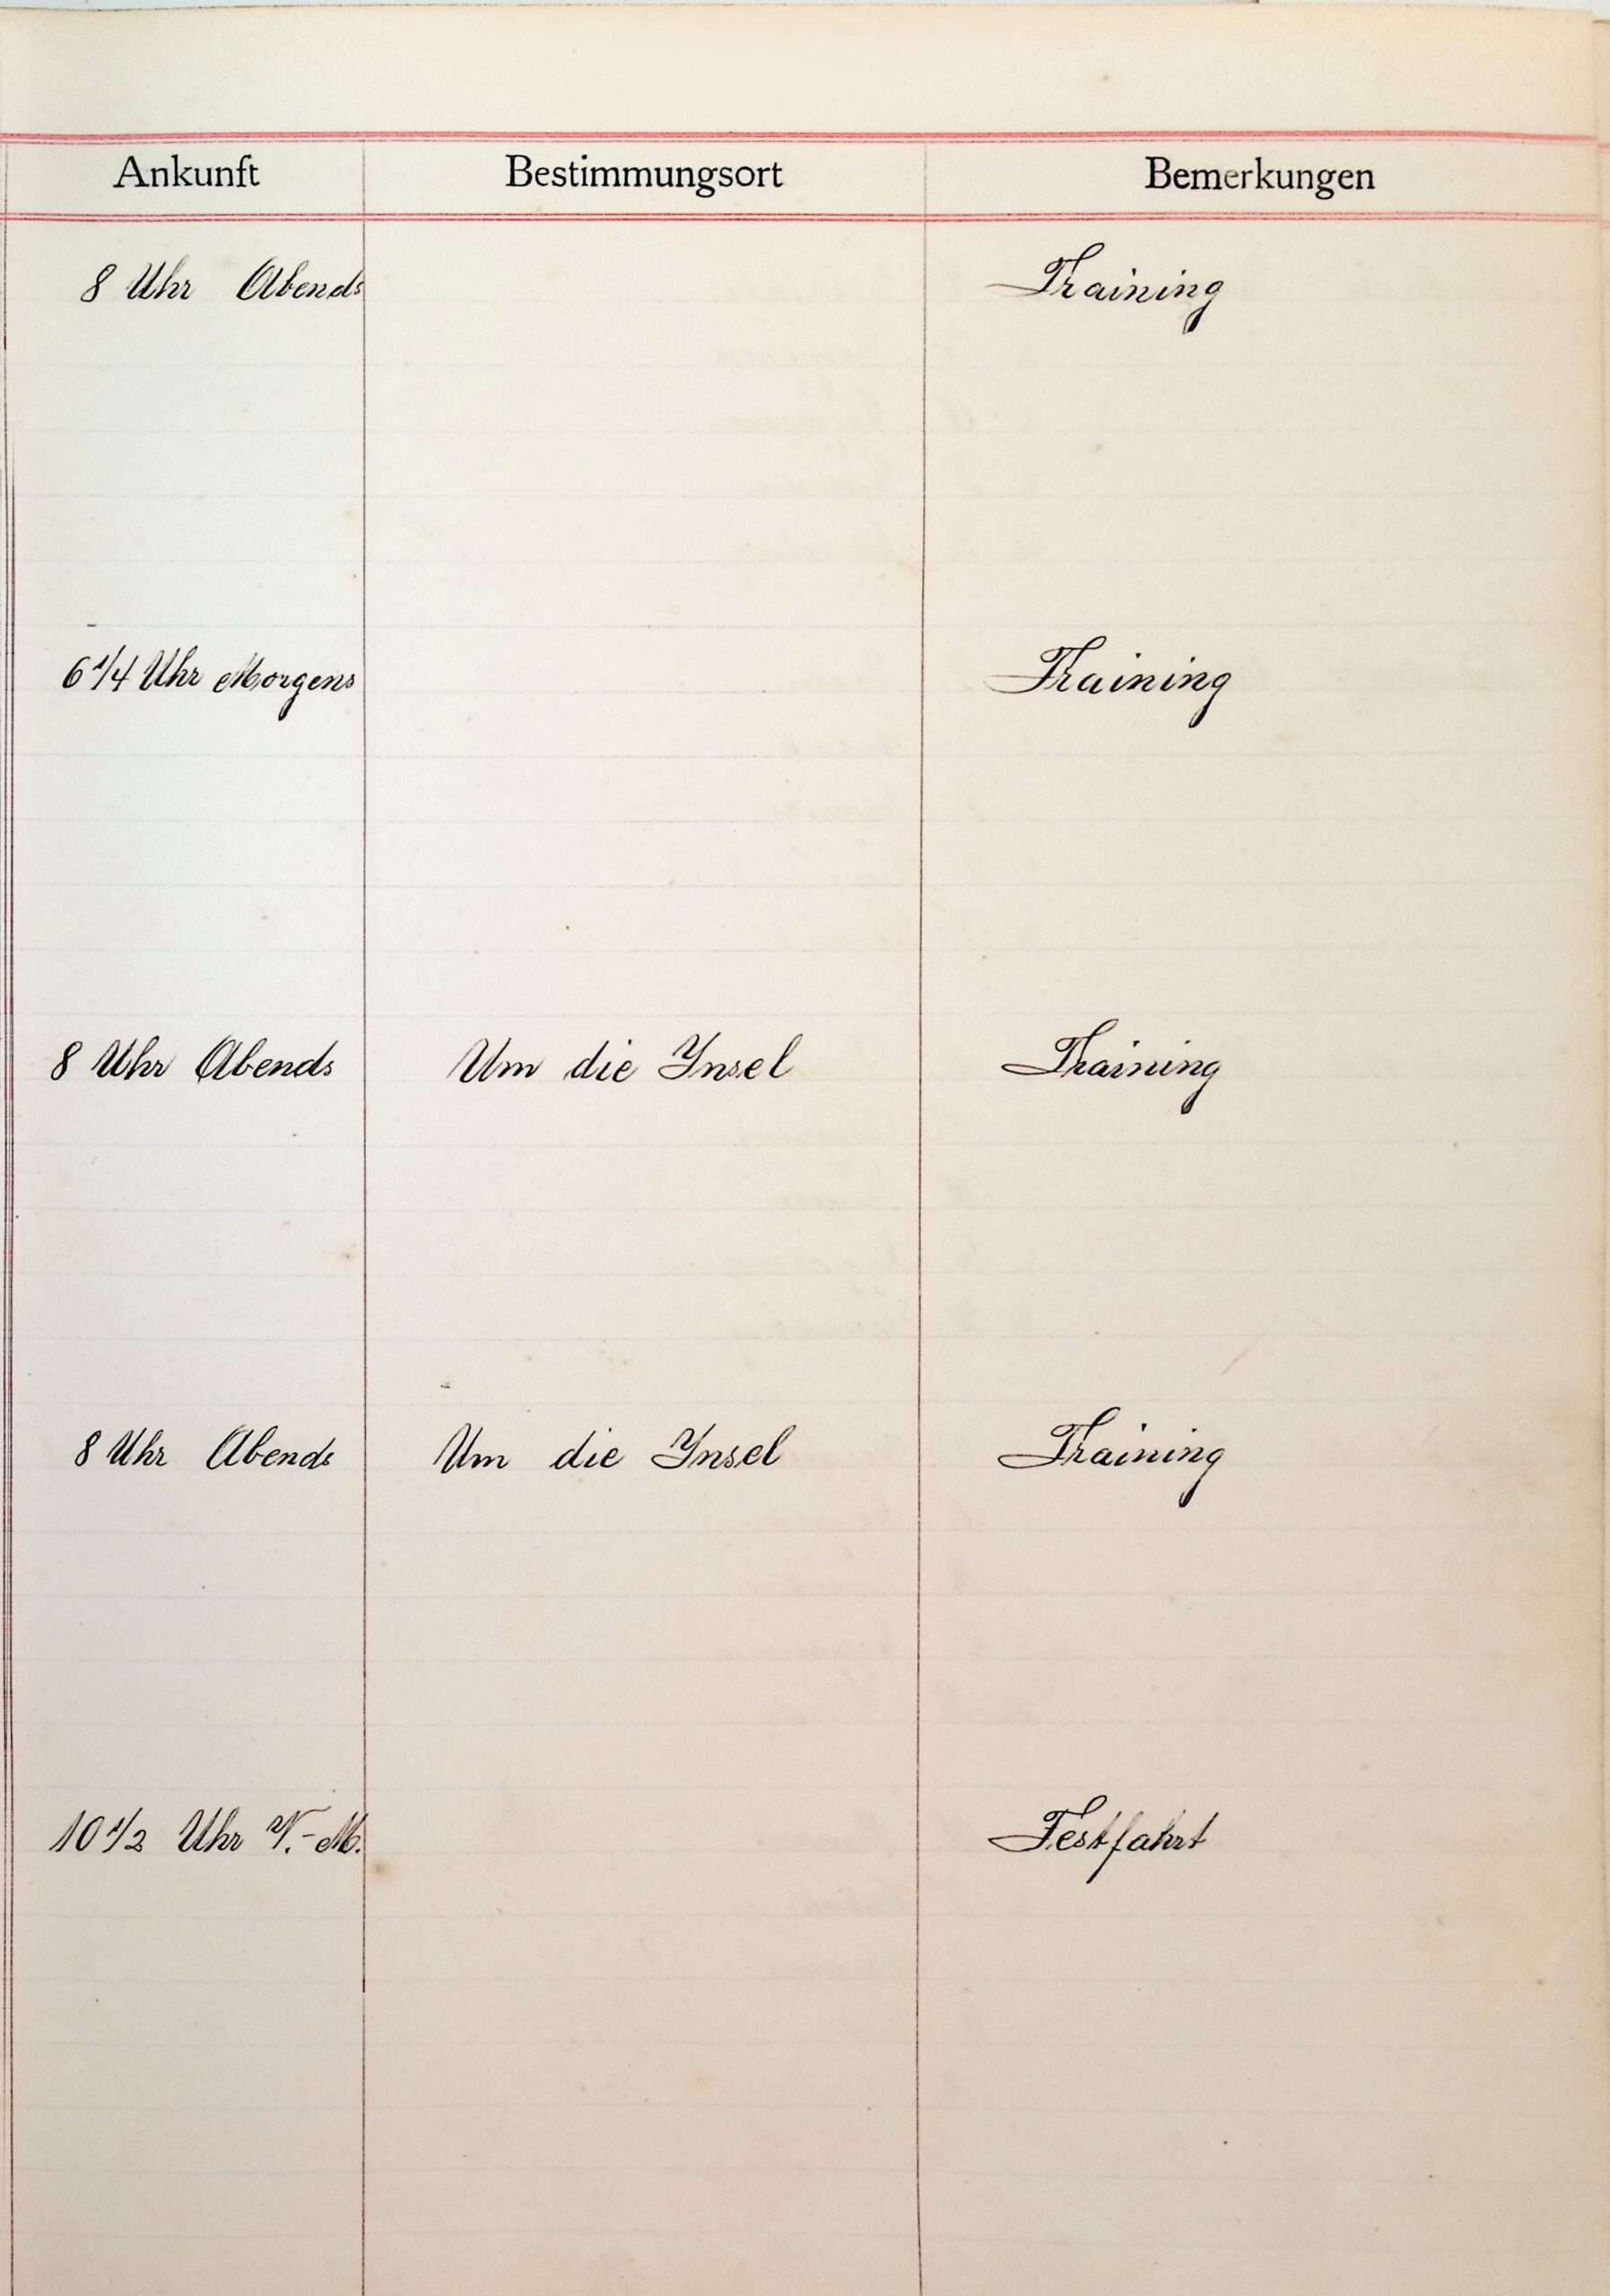 Ankunft Bestimmungsort Bemerkungen
8 Uhr Abends Training
6 1/4 Uhr Morgens Training
8 Uhr Abends Um die Insel Training
8 Uhr Abends Um die Insel Training
10 1/2 Uhr V.-M. Festfahrt